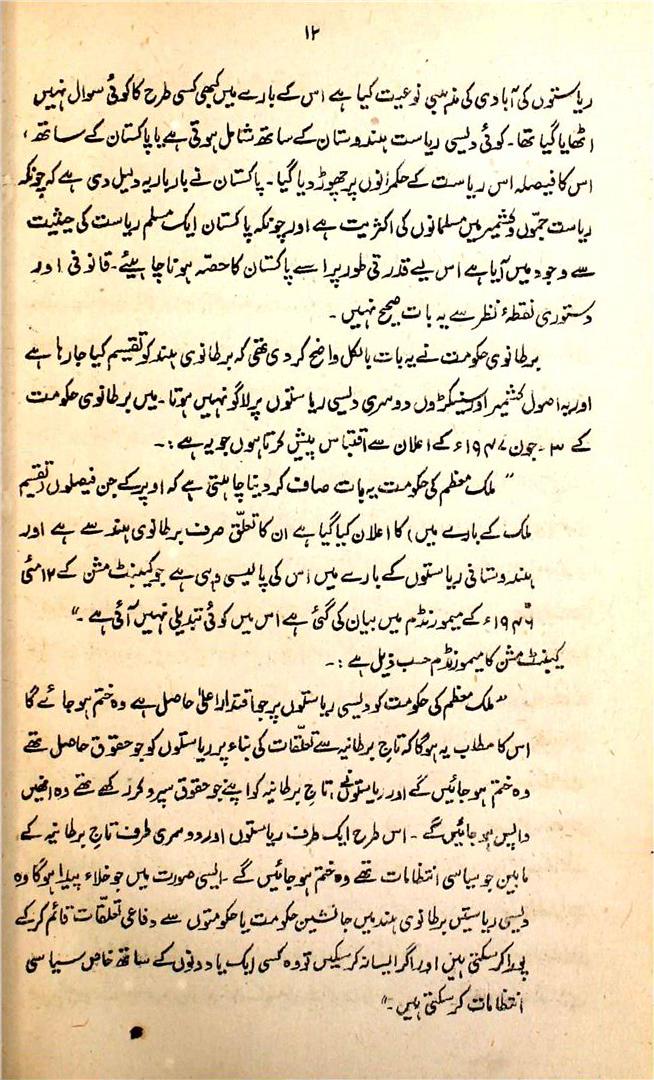 ۱۲
ریاستوں کی آبادی کی مذہبی نوعیت کیا ہے اس کے بارے میں کبھی کسی طرح کا کوئی سوال نہیں
اٹھایا گیا تھا۔ کوئی دیسی ریاست ہندوستان کے ساتھ شامل ہوتی ہے یا پاکستان کے ساتھ،
اس کا فیصلہ اس ریاست کے حکمرانوں پر چھوڑ دیا گیا۔ پاکستان نے بار بار یہ دلیل دی ہے کہ چونکہ
ریاست جموّں و کشمیر میں مسلمانوں کی اکثریت ہے اور چونکہ پاکستان ایک مسلم ریاست کی حیثیت
سے وجود میں آیا ہے اس لیے قدرتی طور پر اسے پاکستان کا حصّہ ہونا چاہیئے۔ قانونی اور
دستوری نقطۂ نظر سے یہ بات صحیح نہیں۔
برطانوی حکومت نے یہ بات بالکل واضح کر دی تھی کہ برطانوی ہند کو تقسیم کیا جا رہا ہے
اور یہ اصول کشمیر اور سینکڑوں دوسری دیسی ریاستوں پر لاگو نہیں ہوتا۔ میں برطانوی حکومت
کے ۳۔ جون ۱۹۴۷ء کے اعلان سے اقتباس پیش کرتا ہوں جو یہ ہے:۔
”ملک معظم کی حکومت یہ بات صاف کر دینا چاہتی ہے کہ اوپر کے جن فیصلوں (تقسیم
ملک کے بارے میں) کا اعلان کیا گیا ہے ان کا تعلّق صرف برطانوی ہند سے ہے اور
ہندوستانی ریاستوں کے بارے میں اس کی پالیسی وہی ہے جو کیبنٹ مشن کے ۱۲ مئی
۱۹۴۶ء کے میمورنڈم میں بیان کی گئی ہے اس میں کوئی تبدیلی نہیں آئی ہے۔“
کیبنٹ مشن کا میمورنڈم حسب ذیل ہے:۔
”ملک معظم کی حکومت کو دیسی ریاستوں پر جو اقتدار اعلیٰ حاصل ہے وہ ختم ہو جائے گا
اس کا مطلب یہ ہوگا کہ تاج برطانیہ سے تعلّقات کی بناء پر ریاستوں کو جو حقوق حاصل تھے
وہ ختم ہو جائیں گے اور ریاستوں نے، تاج برطانیہ کو اپنے جو حقوق سپرد کر رکھے تھے وہ انھیں
واپس ہو جائیں گے۔ اس طرح ایک طرف ریاستوں اور دوسری طرف تاج برطانیہ کے
مابین جو سیاسی انتظامات تھے وہ ختم ہو جائیں گے۔ ایسی صورت میں جو خلاء پیدا ہوگا وہ
دیسی ریاستیں برطانوی ہند میں جانشین حکومت یا حکومتوں سے دفاعی تعلّقات قائم کرکے
پورا کر سکتی ہیں اور اگر ایسا نہ کر سکیں تو وہ کسی ایک یا دونوں کے ساتھ خاص سیاسی
انتظامات کر سکتی ہیں۔“